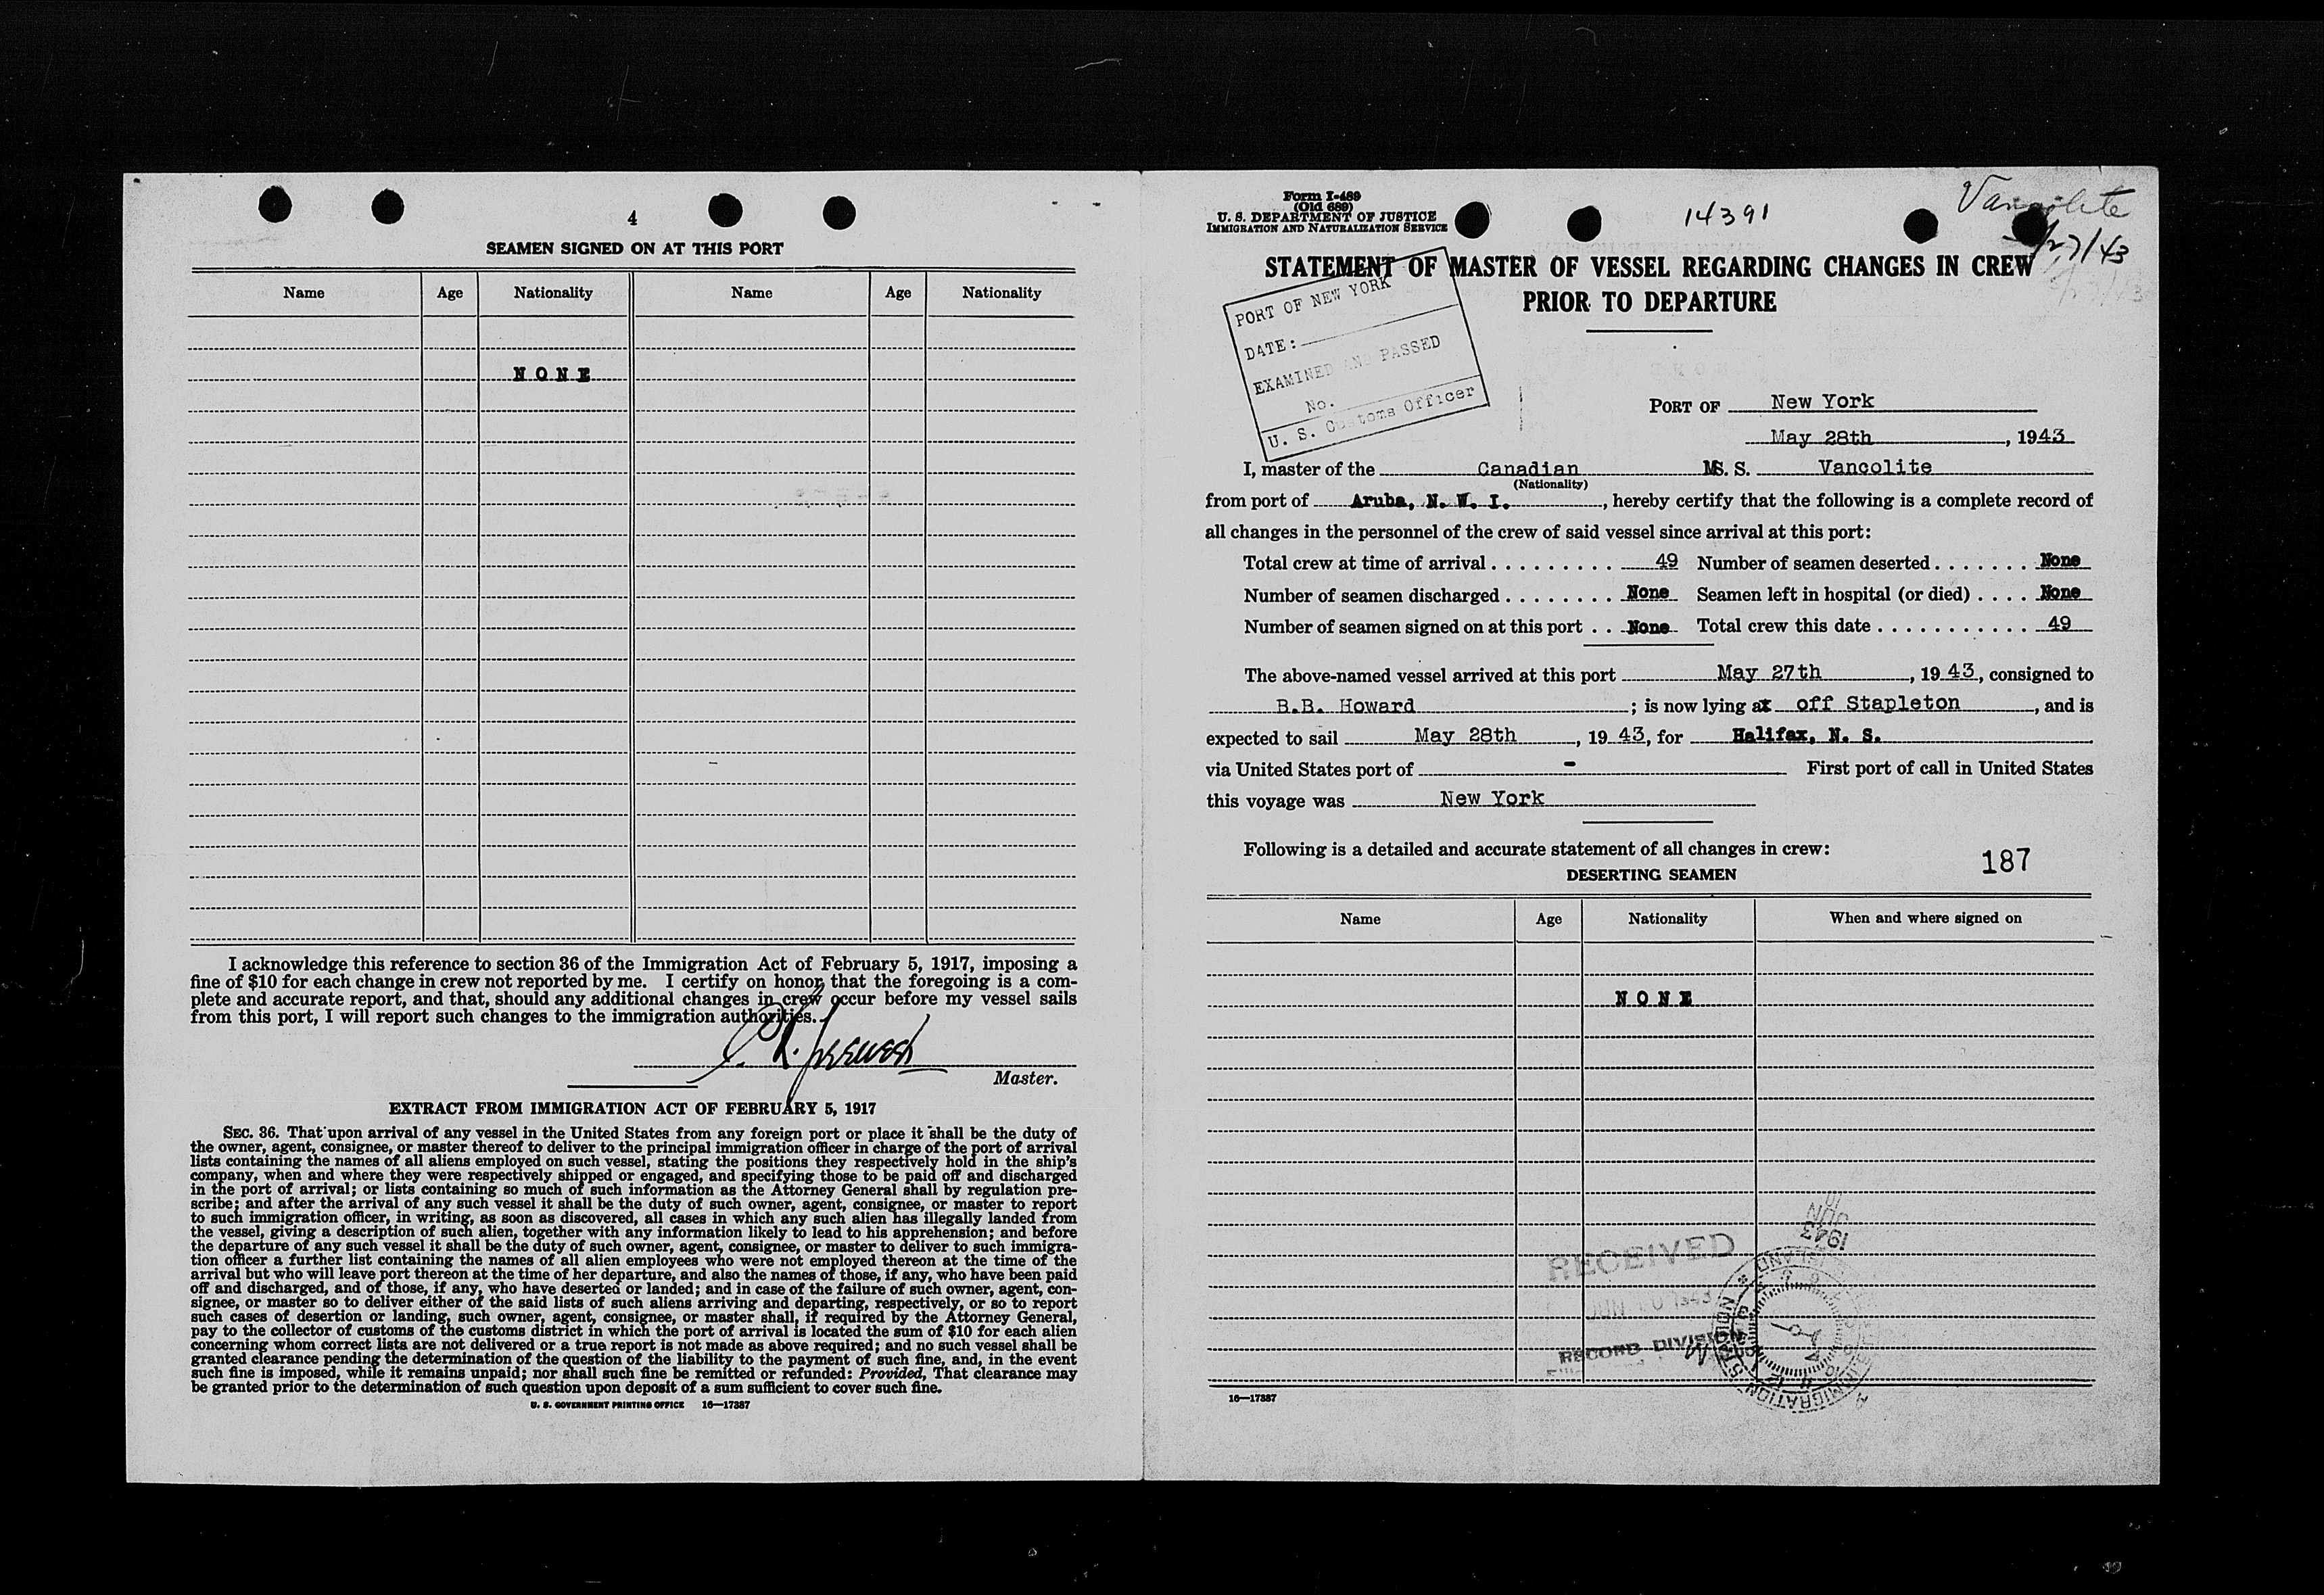 4
SEAMEN SIGNED ON AT THIS PORT
Name Age Nationality Name Age Nationality
NONE
I acknowledge this reference to section 36 of the Immigration Act of February 5, 1917, imposing a
fine of $10 for each change in crew not reported by me. I certify on honor, that the foregoing is a com-
plete and accurate report, and that, should any additional changes in crew occur before my vessel sails
from this port, I will report such changes to the immigration authorities.
Master.
EXTRACT FROM IMMIGRATION ACT OF FEBRUARY 5, 1917
SEC. 36. That upon arrival of any vessel in the United States from any foreign port or place it shall be the duty of
the owner, agent, consignee, or master thereof to deliver to the principal immigration officer in charge of the port of arrival
lists containing the names of all aliens employed on such vessel, stating the positions they respectively hold in the ship's
company, when and where they were respectively shipped or engaged, and specifying those to be paid off and discharged
in the port of arrival; or lists containing so much of such information as the Attorney General shall by regulation pre-
scribe; and after the arrival of any such vessel it shall be the duty of such owner, agent, consignee, or master to report
to such immigration officer, in writing, as soon as discovered, all cases in which any such alien has illegally landed from
the vessel, giving a description of such alien, together with any information likely to lead to his apprehension; and before
the departure of any such vessel it shall be the duty of such owner, agent, consignee, or master to deliver to such immigra-
tion officer a further list containing the names of all alien employees who were not employed thereon at the time of the
arrival but who will leave port thereon at the time of her departure, and also the names of those, if any, who have been paid
off and discharged, and of those, if any, who have deserted or landed; and in case of the failure of such owner, agent, con-
signee, or master so to deliver either of the said lists of such aliens arriving and departing, respectively, or so to report
such cases of desertion or landing, such owner, agent, consignee, or master shall, if required by the Attorney General,
pay to the collector of customs of the customs district in which the port of arrival is located the sum of $10 for each alien
concerning whom correct lists are not delivered or a true report is not made as above required; and no such vessel shall be
granted clearance pending the determination of the question of the liability to the payment of such fine, and, in the event
such fine is imposed, while it remains unpaid; nor shall such fine be remitted or refunded: Provided, That clearance may
be granted prior to the determination of such question upon deposit of a sum sufficient to cover such fine.
U. S. GOVERNMENT PRINTING OFFICE 16—17387
Form I-489
(Old 689)
U. S. DEPARTMENT OF JUSTICE
IMMIGRATION AND NATURALIZATION SERVICE
14391
Vancolite
/27/43
STATEMENT OF MASTER OF VESSEL REGARDING CHANGES IN CREW
PRIOR TO DEPARTURE
PORT OF NEW YORK
DATE:
EXAMINED AND PASSED
No.
U. S. Customs Officer
PORT OF New York
May 28th, 1943
I, master of the Canadian MS. S. Vancolite
(Nationality)
from port of Aruba, N. W. I., hereby certify that the following is a complete record of
all changes in the personnel of the crew of said vessel since arrival at this port:
Total crew at time of arrival . . . . . . . . . 49 Number of seamen deserted . . . . . . . None
Number of seamen discharged . . . . . . . . None Seamen left in hospital (or died) . . . . None
Number of seamen signed on at this port . . None Total crew this date . . . . . . . . . . . . 49
The above-named vessel arrived at this port May 27th, 1943, consigned to
B.B. Howard; is now lying at off Stapleton, and is
expected to sail May 28th, 1943, for Halifax, N. S.
via United States port of - First port of call in United States
this voyage was New York
Following is a detailed and accurate statement of all changes in crew:
187
DESERTING SEAMEN
Name Age Nationality When and where signed on
NONE
RECEIVED
JUN 10 1943
RECORD DIVISION
JUN 10
1943
16—17387